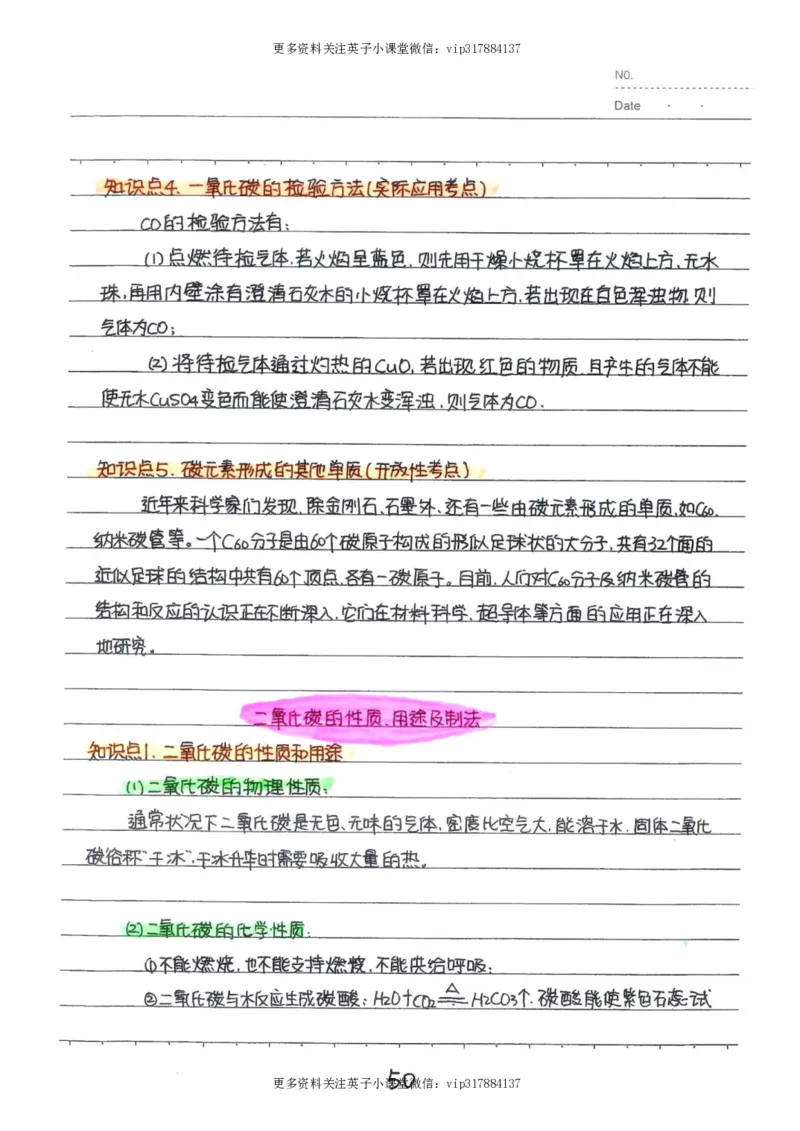 更多资料关注英子小课堂微信：vip317884137
NO.
Date
知识点4. 一氧化碳的检验方法(实际应用考点)
CO的检验方法有：
(1)点燃待检气体.若火焰呈蓝色.则先用干燥小烧杯罩在火焰上方,无水
珠,再用内壁涂有澄清石灰水的小烧杯罩在火焰上方,若出现在白色浑浊物.则
气体为CO；
(2)将待检气体通过灼热的CuO,若出现红色的物质.且产生的气体不能
使无水CuSO4变色而能使澄清石灰水变浑浊,则气体为CO.
知识点5. 碳元素形成的其他单质(开放性考点)
近年来科学家们发现.除金刚石、石墨外、还有一些由碳元素形成的单质,如C60.
纳米碳管等。一个C60分子是由60个碳原子构成的形似足球状的大分子,共有32个面的
近似足球的结构中共有60个顶点.各有一碳原子。目前.人们对C60分子及纳米碳管的
结构和反应的认识正在不断深入.它们在材料科学,超导体等方面的应用正在深入
地研究。
二氧化碳的性质、用途及制法
知识点1. 二氧化碳的性质和用途
(1)二氧化碳的物理性质：
通常状况下二氧化碳是无色、无味的气体,密度比空气大,能溶于水.固体二氧化
碳俗称"干冰",干冰升华时需要吸收大量的热。
(2)二氧化碳的化学性质：
①不能燃烧,也不能支持燃烧,不能供给呼吸；
②二氧化碳与水反应生成碳酸：H2O+CO2 △= H2CO3↑.碳酸能使紫色石蕊试
50
更多资料关注英子小课堂微信：vip317884137